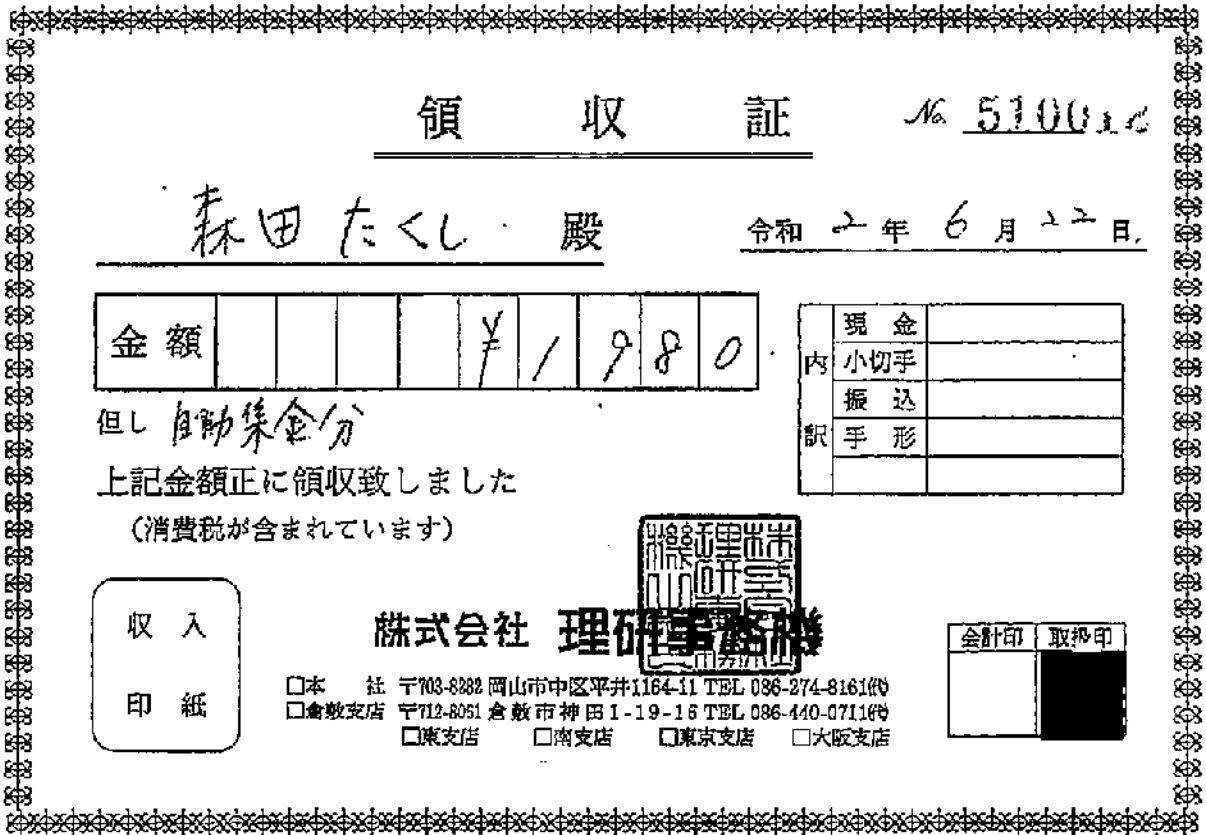 領収証
No. 5100
森田 たくし 殿
令和 2 年 6 月 22 日
金額 ¥1980
但し 自動集金分
上記金額正に領収致しました
(消費税が含まれています)
内訳
現金
小切手
振込
手形
収入
印紙
株式会社 理研事務機
□本 社 〒703-8282 岡山市中区平井1164-11 TEL 086-274-8161㈹
□倉敷支店 〒712-8051 倉敷市神田1-19-16 TEL 086-440-0711㈹
□東支店 □南支店 □東京支店 □大阪支店
会計印 取扱印